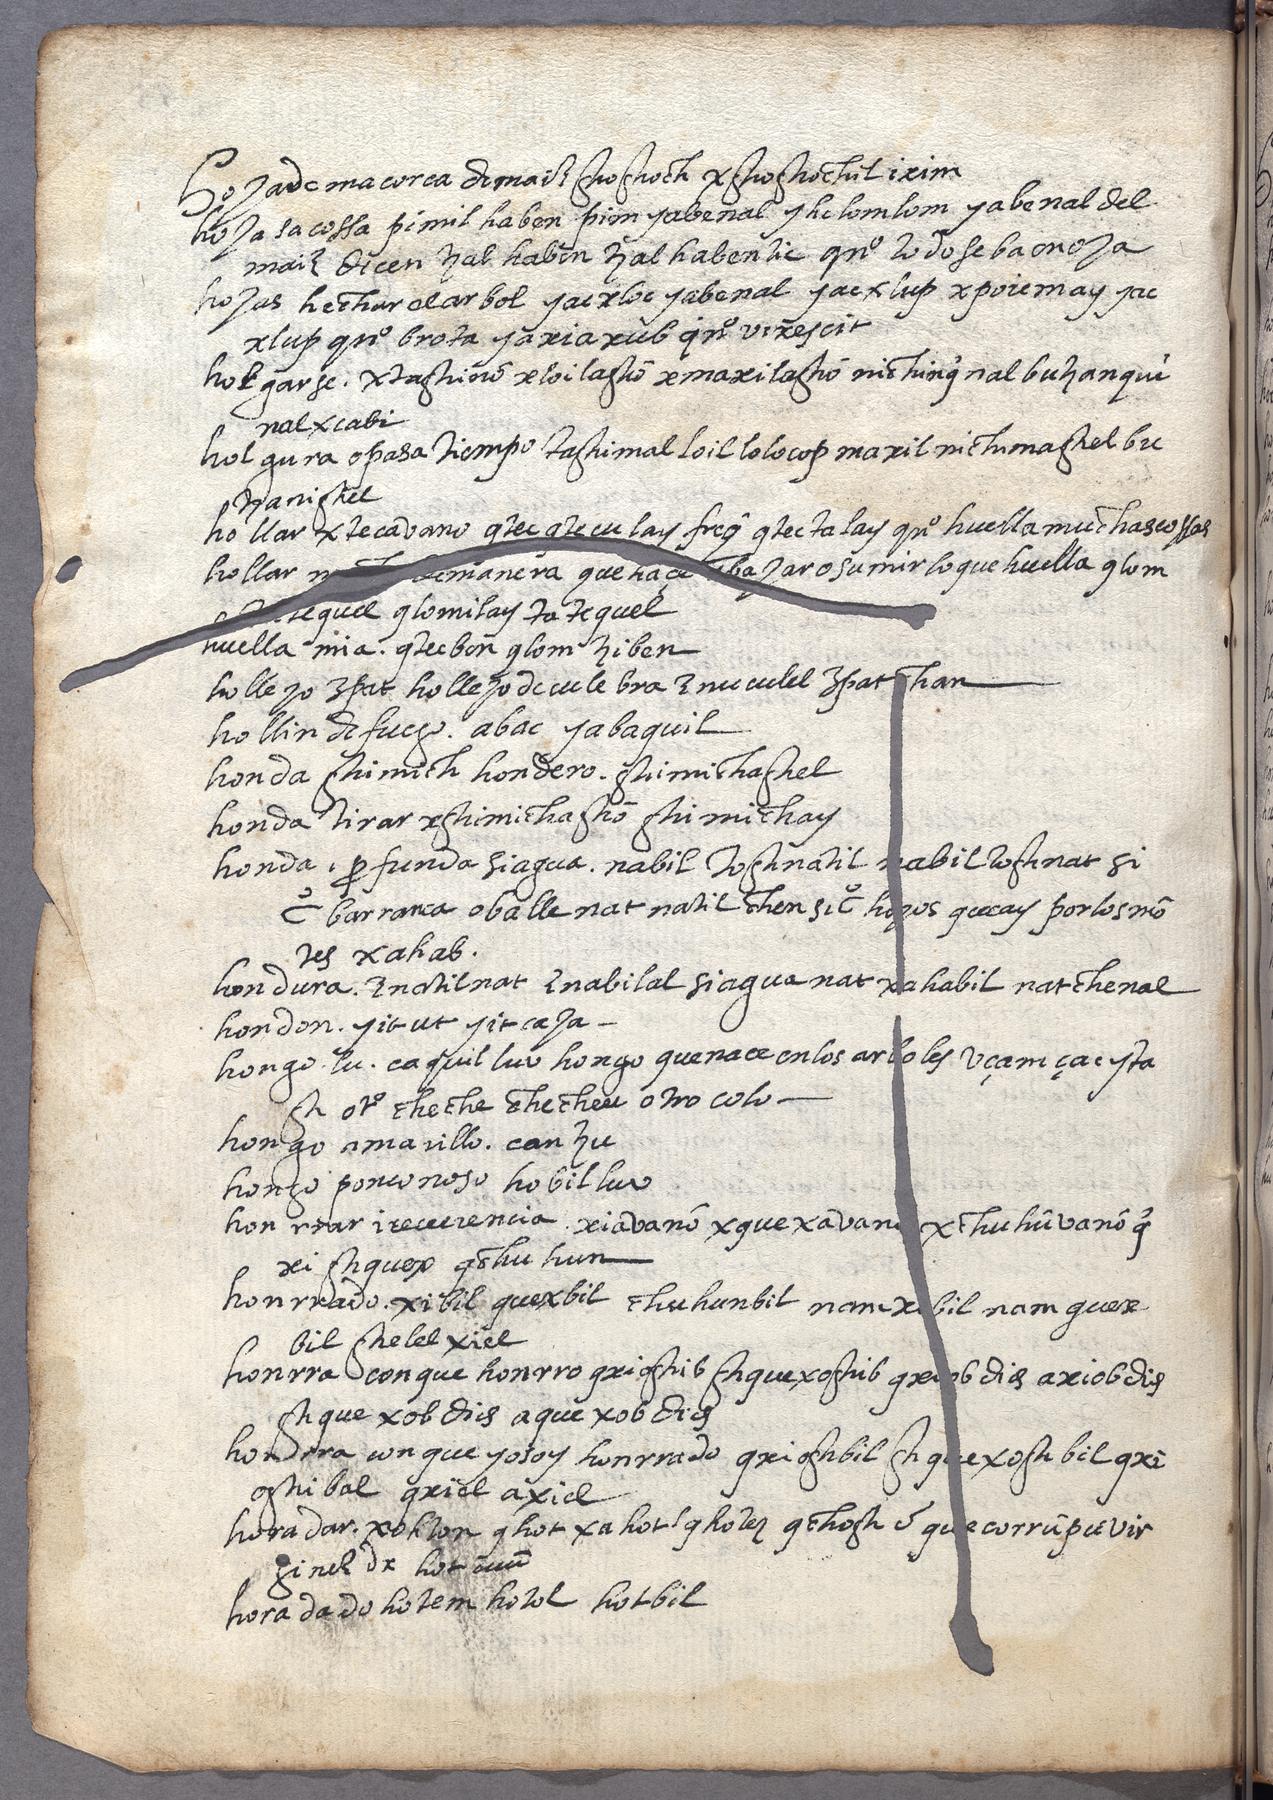 Hoja de macorca de maiz ghoghoch xghoghochil ixim
hoja la cossa pimil haben pim yabenal yhelomlom yabenal del
maiz dicen tzal haben tzal habentic qnº todo se ba en oja
hojas hechar el arbol yacxloc yabenal yacxlup xpoiemay yac
xlup qnº brota yaxiaxub qnº virescit
holgarse. xtaghinõ xloilaghõ xmaxilaghõ nichinq̃ nal butzanqui
nal xcabi
holgura o pasatiempo taghimal loil lolocop maxil nichimaghel bu
tzanighel
hollar xtecavano qtec qteculay freq̃ qtectalay qnº huella muchas cossas
hollar de manera que haçe abajar o sumir lo que huella qlom
tequel qlomilay ta tequel
huella mia. qtecbon qlom tziben
hollejo zpat hollejo de culebra znuculel zpat chan
hollin de fuego. abac yabaquil
honda ghimich hondero. ghimichaghel
honda tirar xghimichaghõ ghimichay
honda, profunda si agua. nabil toghnatil nabil toghnat si
c̃ barranca o balle nat natil chen si c̃ hoyos que ay por los mõ
tes xahab.
hondura. znatil nat znabilal si agua nat xahabil nat chenal
hondon. yit ut yit caja
hongo. lu. caquil luv hongo que nace en los arboles uçam çacyta
gh otº cheche checheu otro colo
hongo amarillo. can tzu
hongo ponconoso hobil luv
honrrar i reverencia. xiavanõ xquexavanõ xchuhũvanõ q̃
xi ghquex qchuhun
honrrado. xibil quexbil chuhunbil nam xibil nam quex
bil ghelel xiel
honrra con que honrro qxioghib ghquexoghib qxiob dios axiob dios
ghquexob dios aquexob dios
honrra con que yo soy honrrado qxioghbil ghquexoghbil qxi
oghibal qxiel axiel
horadar. xohton qhot xahot qhotez qchogh
ginez dr hot
horadado hotem hotol hotbil